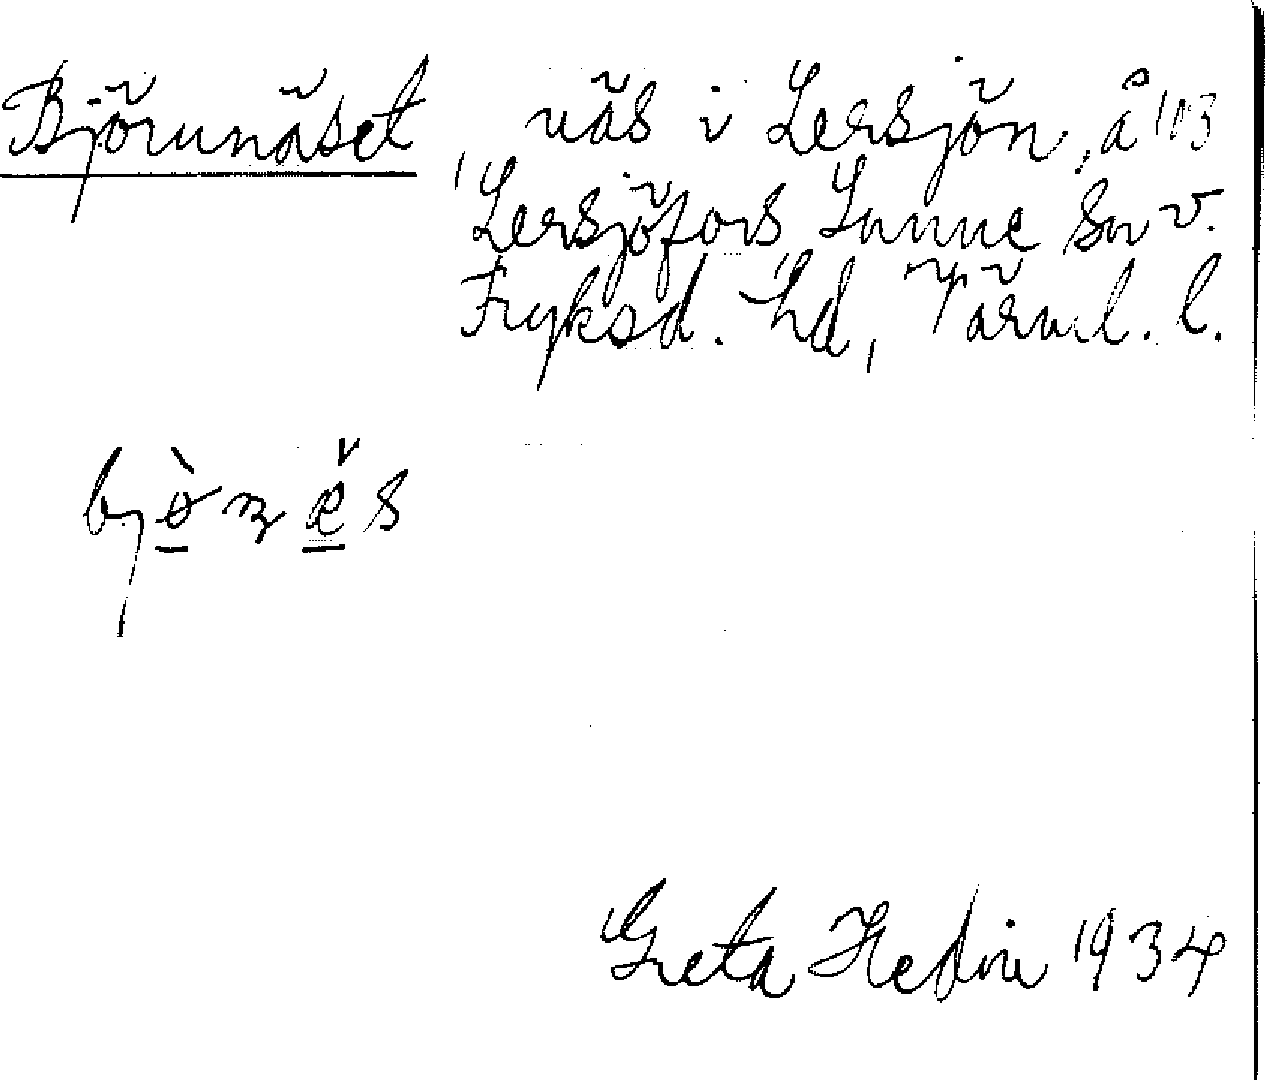 Björnnäset näs i Lersjön, å 1/103
Lersjöfors Sunne sn v.
Fryksd. hd, Värml. l.
bjø̀næ̌s
Greta Hedin 1934